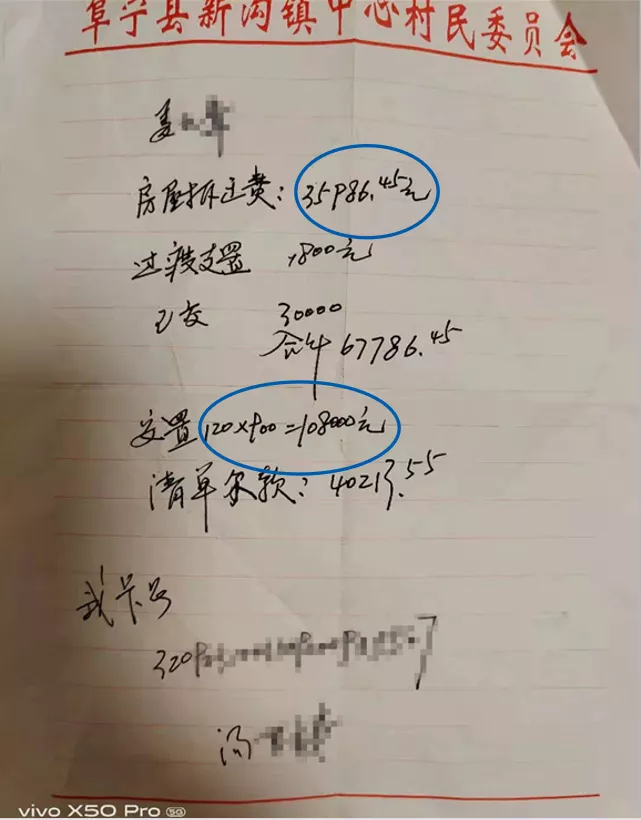 阜宁县新沟镇中心村民委员会
房屋拆迁费：35986.45元
过渡安置 1800元
已交 30000
合计 67786.45
安置 120×900=108000元
清单余款：40213.55
我卡号
320
7
汤
vivo X50 Pro 5G